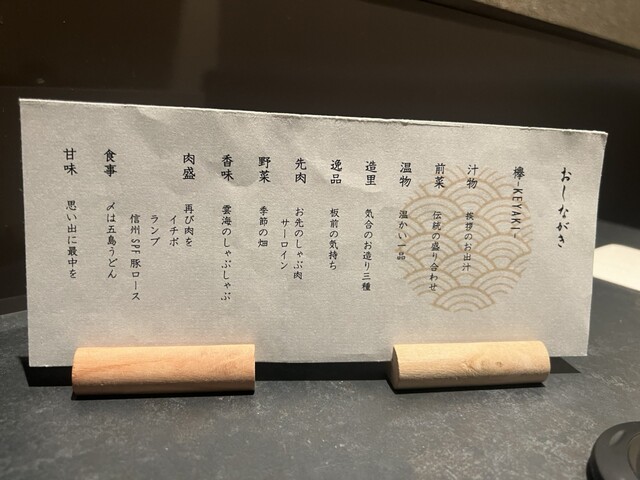 おしながき
欅-KEYAKI-
汁物 挨拶のお出汁
前菜 伝統の盛り合わせ
温物 温かい一品
造里 気合のお造り三種
逸品 板前の気持ち
先肉 お先のしゃぶ肉
サーロイン
野菜 季節の畑
香味 雲海のしゃぶしゃぶ
肉盛 再び肉を
イチボ
ランプ
信州SPF豚ロース
食事 〆は五島うどん
甘味 思い出に最中を